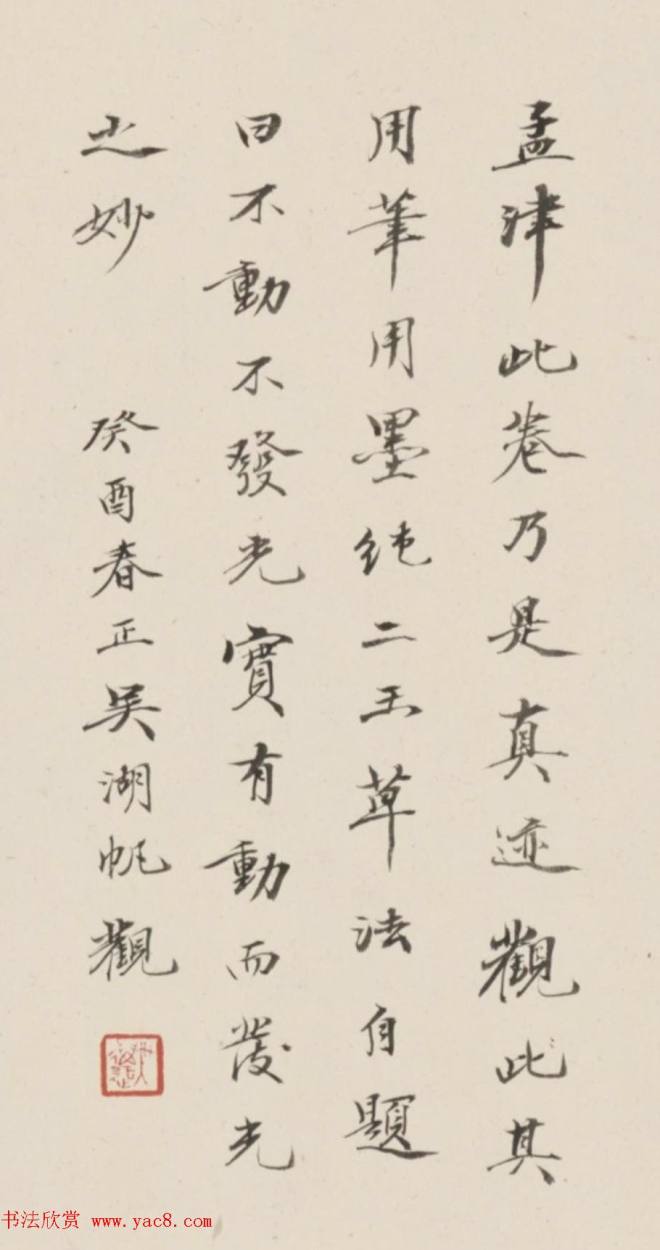 孟津此卷乃是真迹觀此其
用筆用墨純二王草法自題
曰不動不發光實有動而發光
之妙
癸酉春正吳湖帆觀
书法欣赏 www.yac8.com